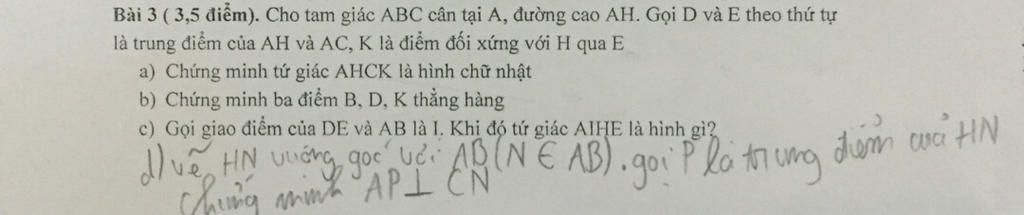 Bài 3 ( 3,5 điểm). Cho tam giác ABC cân tại A, đường cao AH. Gọi D và E theo thứ tự
là trung điểm của AH và AC, K là điểm đối xứng với H qua E
a) Chứng minh tứ giác AHCK là hình chữ nhật
b) Chứng minh ba điểm B, D, K thẳng hàng
c) Gọi giao điểm của DE và AB là I. Khi đó tứ giác AIHE là hình gì?
d) vẽ HN vuông góc với AB (N ∈ AB). gọi P là trung điểm của HN
Chứng minh AP ⊥ CN